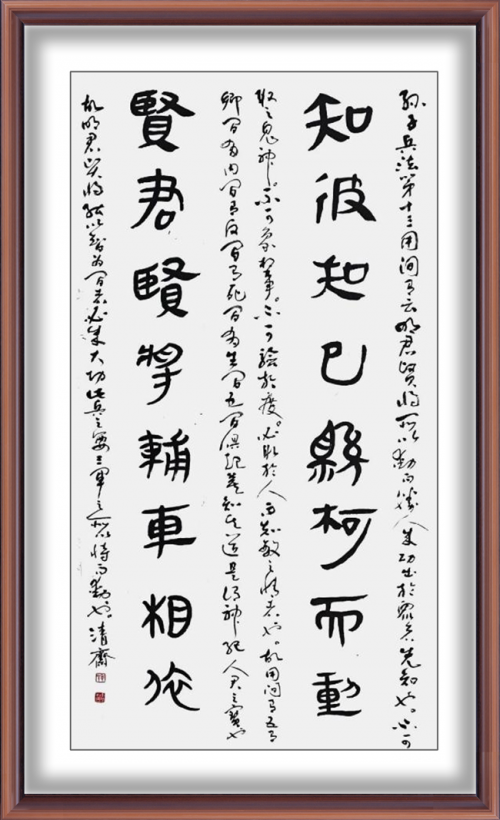 孫子兵法第十三用间有云明君賢將所以動而勝人成功出於眾者先知也。不可
知彼知己縣柯而動
取之鬼神。不可象於事。不可驗於度。必取於人而知敵之情者也。故用间有五有
鄉间有内间有反间有死间有生间五间俱起莫知其道是謂神紀人君之寶也
賢君賢將輔車相依
故明君賢將能以智為间者必成大功此兵之要三軍之所恃而動也。清齋